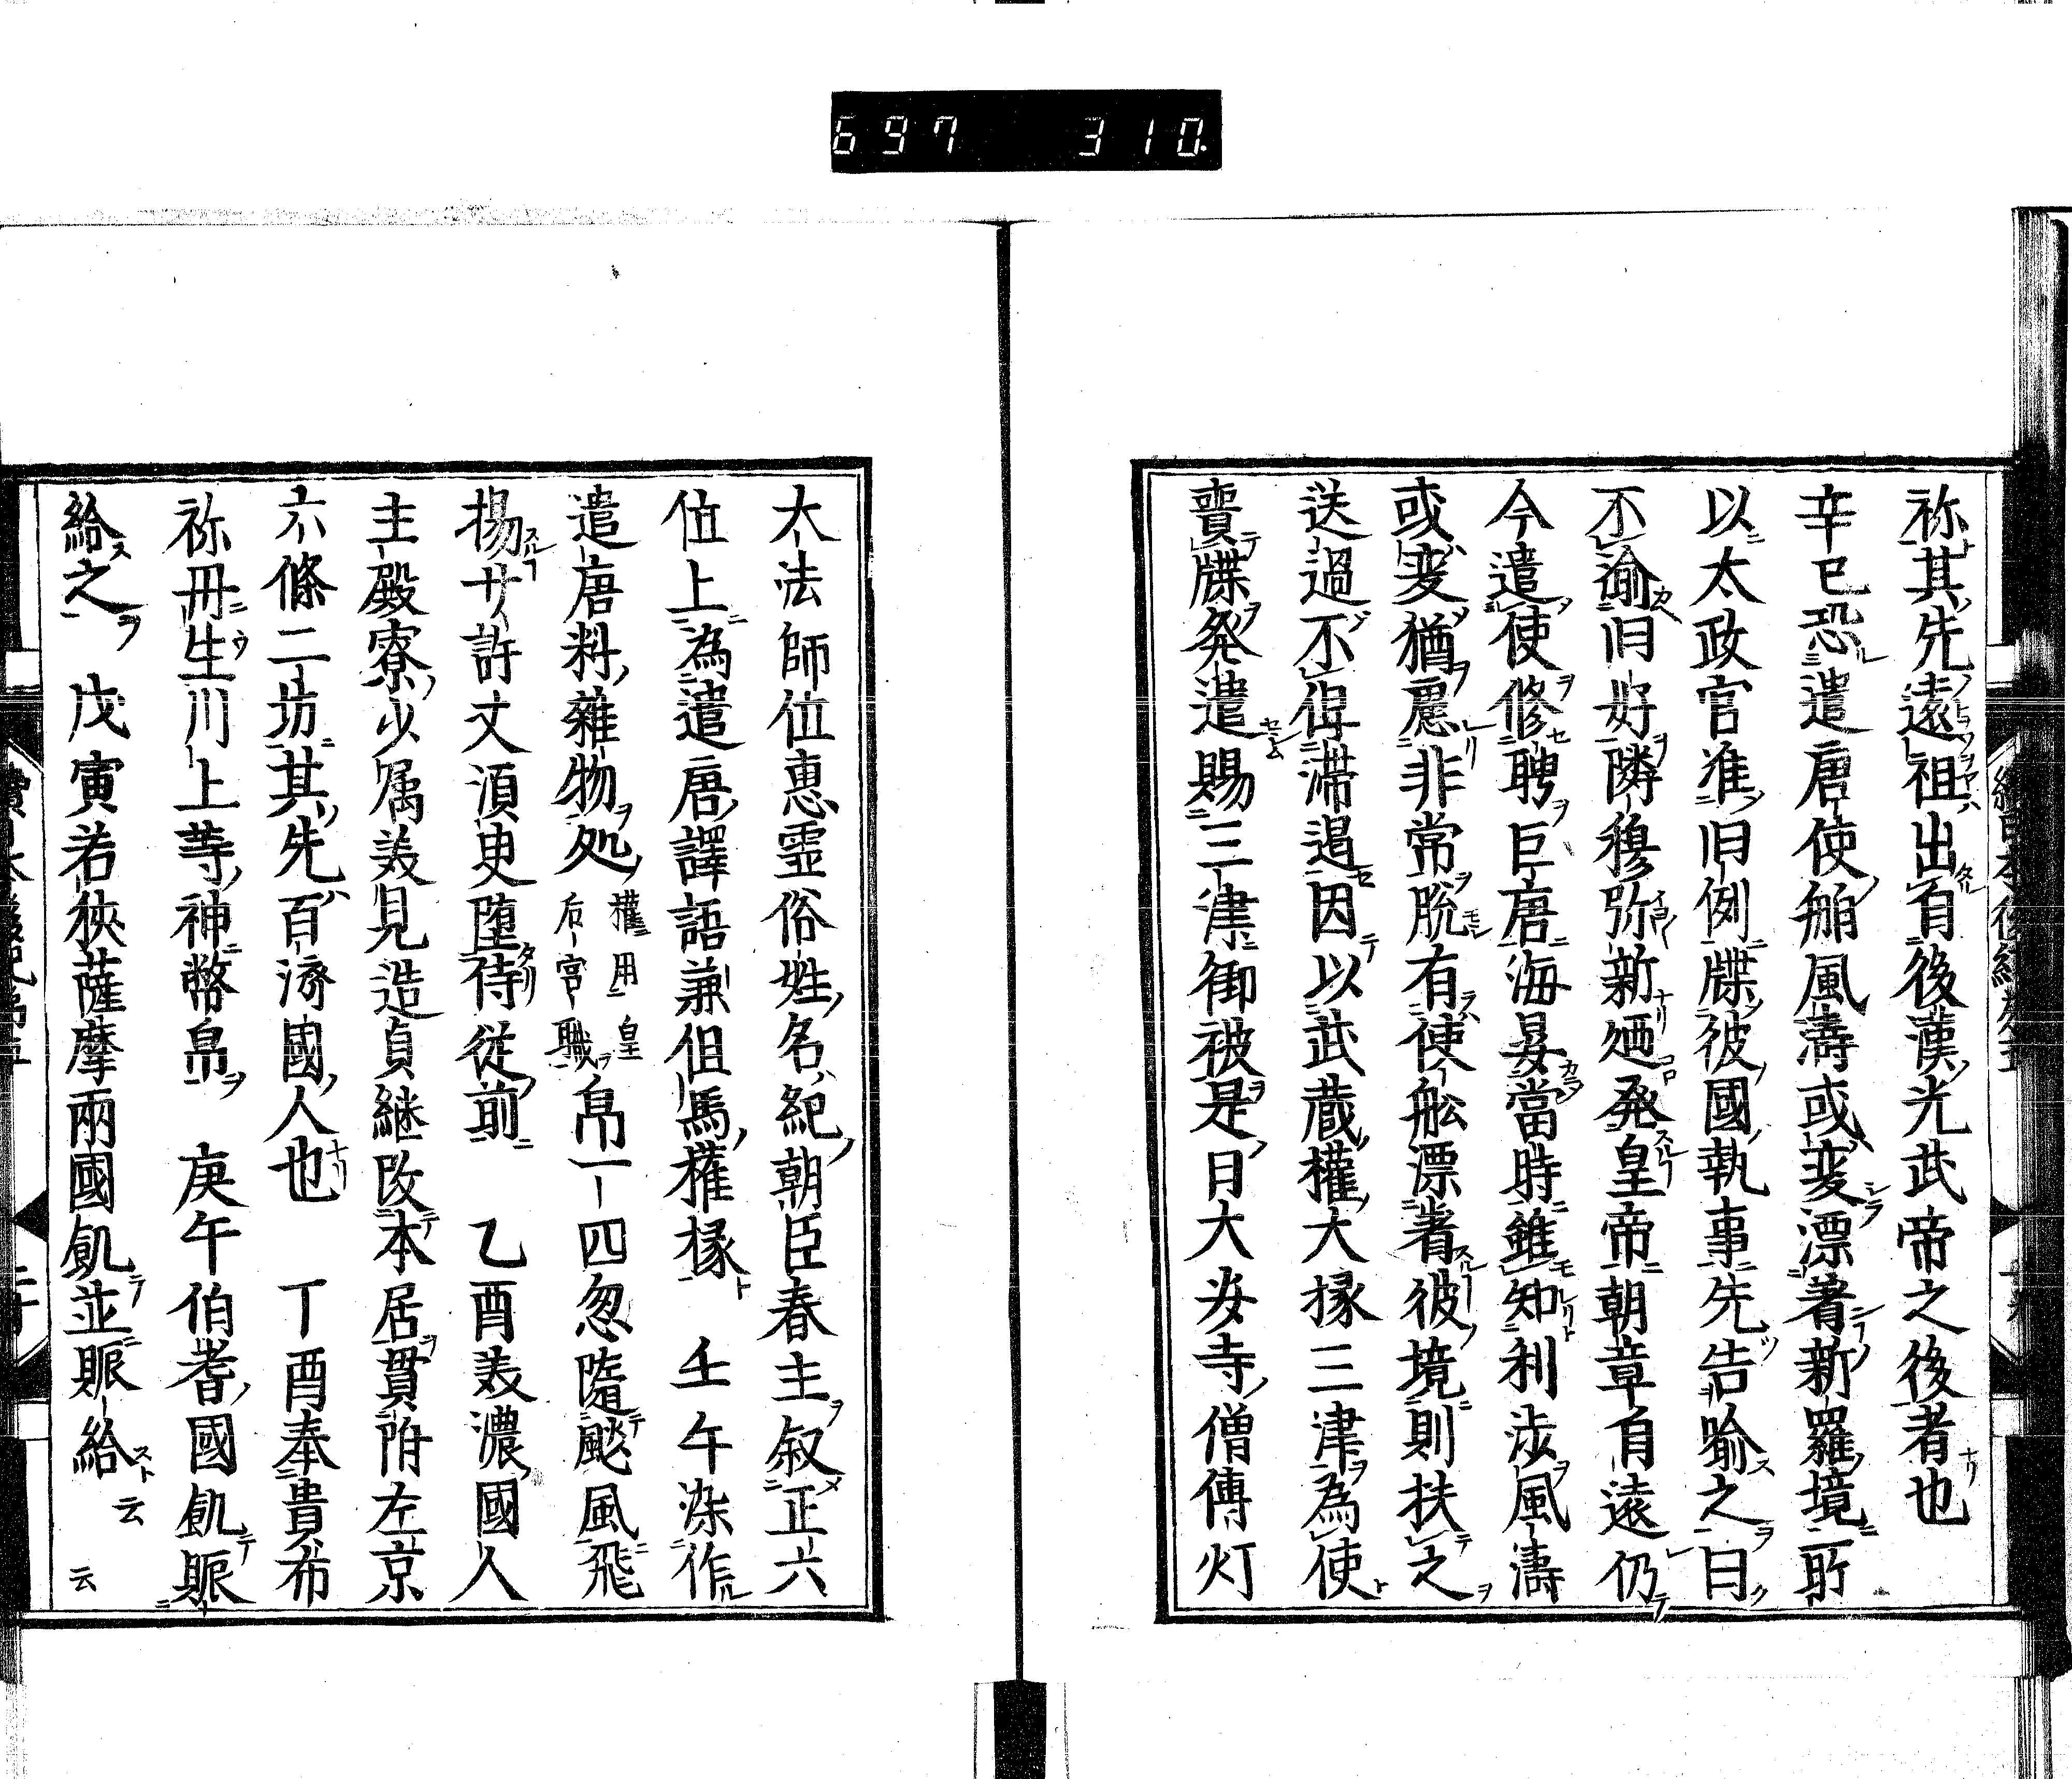 697 310
祢其先遠祖出自後漢光武帝之後者也
辛巳恐遣唐使舶風濤或変漂著新羅境所
以太政官准旧例牒彼國執事先告喻之曰
不渝旧好隣穆弥新廼発皇帝朝章自遠仍
今遣使修聘巨唐海晏當時雖知利渉風濤
或変猶慮非常脫有使舩漂着彼境則扶之
送過不俾滞遏因以武蔵權大掾三津為使
賷牒発遣賜三津御被是日大安寺僧傳灯
大法師位惠霊俗姓名紀朝臣春主叙正六
位上為遣唐譯語兼但馬權掾 壬午染作
遣唐料雜物処權用皇后宮職帛一四忽隨颷風飛
揚廾許丈須臾堕侍從前 乙酉美濃國人
主殿寮少属美見造貞継改本居貫附左京
六條二坊其先百済國人也 丁酉奉貴布
祢冊生川上等神幣帛 庚午伯耆國飢賑
給之 戊寅若狹薩摩兩國飢並賑給云云